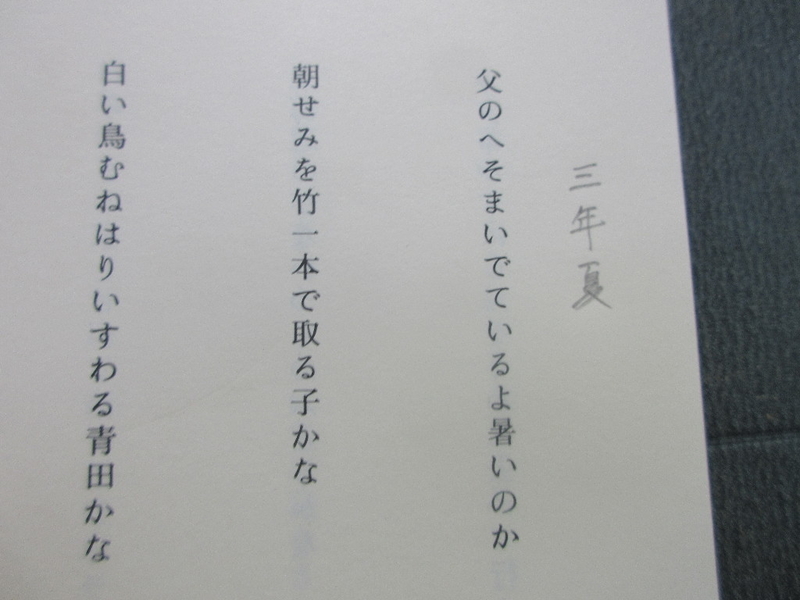 三年夏
父のへそまいでているよ暑いのか
朝せみを竹一本で取る子かな
白い鳥むねはりいすわる青田かな